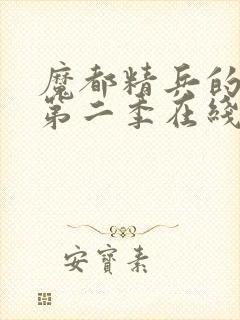 魔都精兵的
第二季在线
安寶素